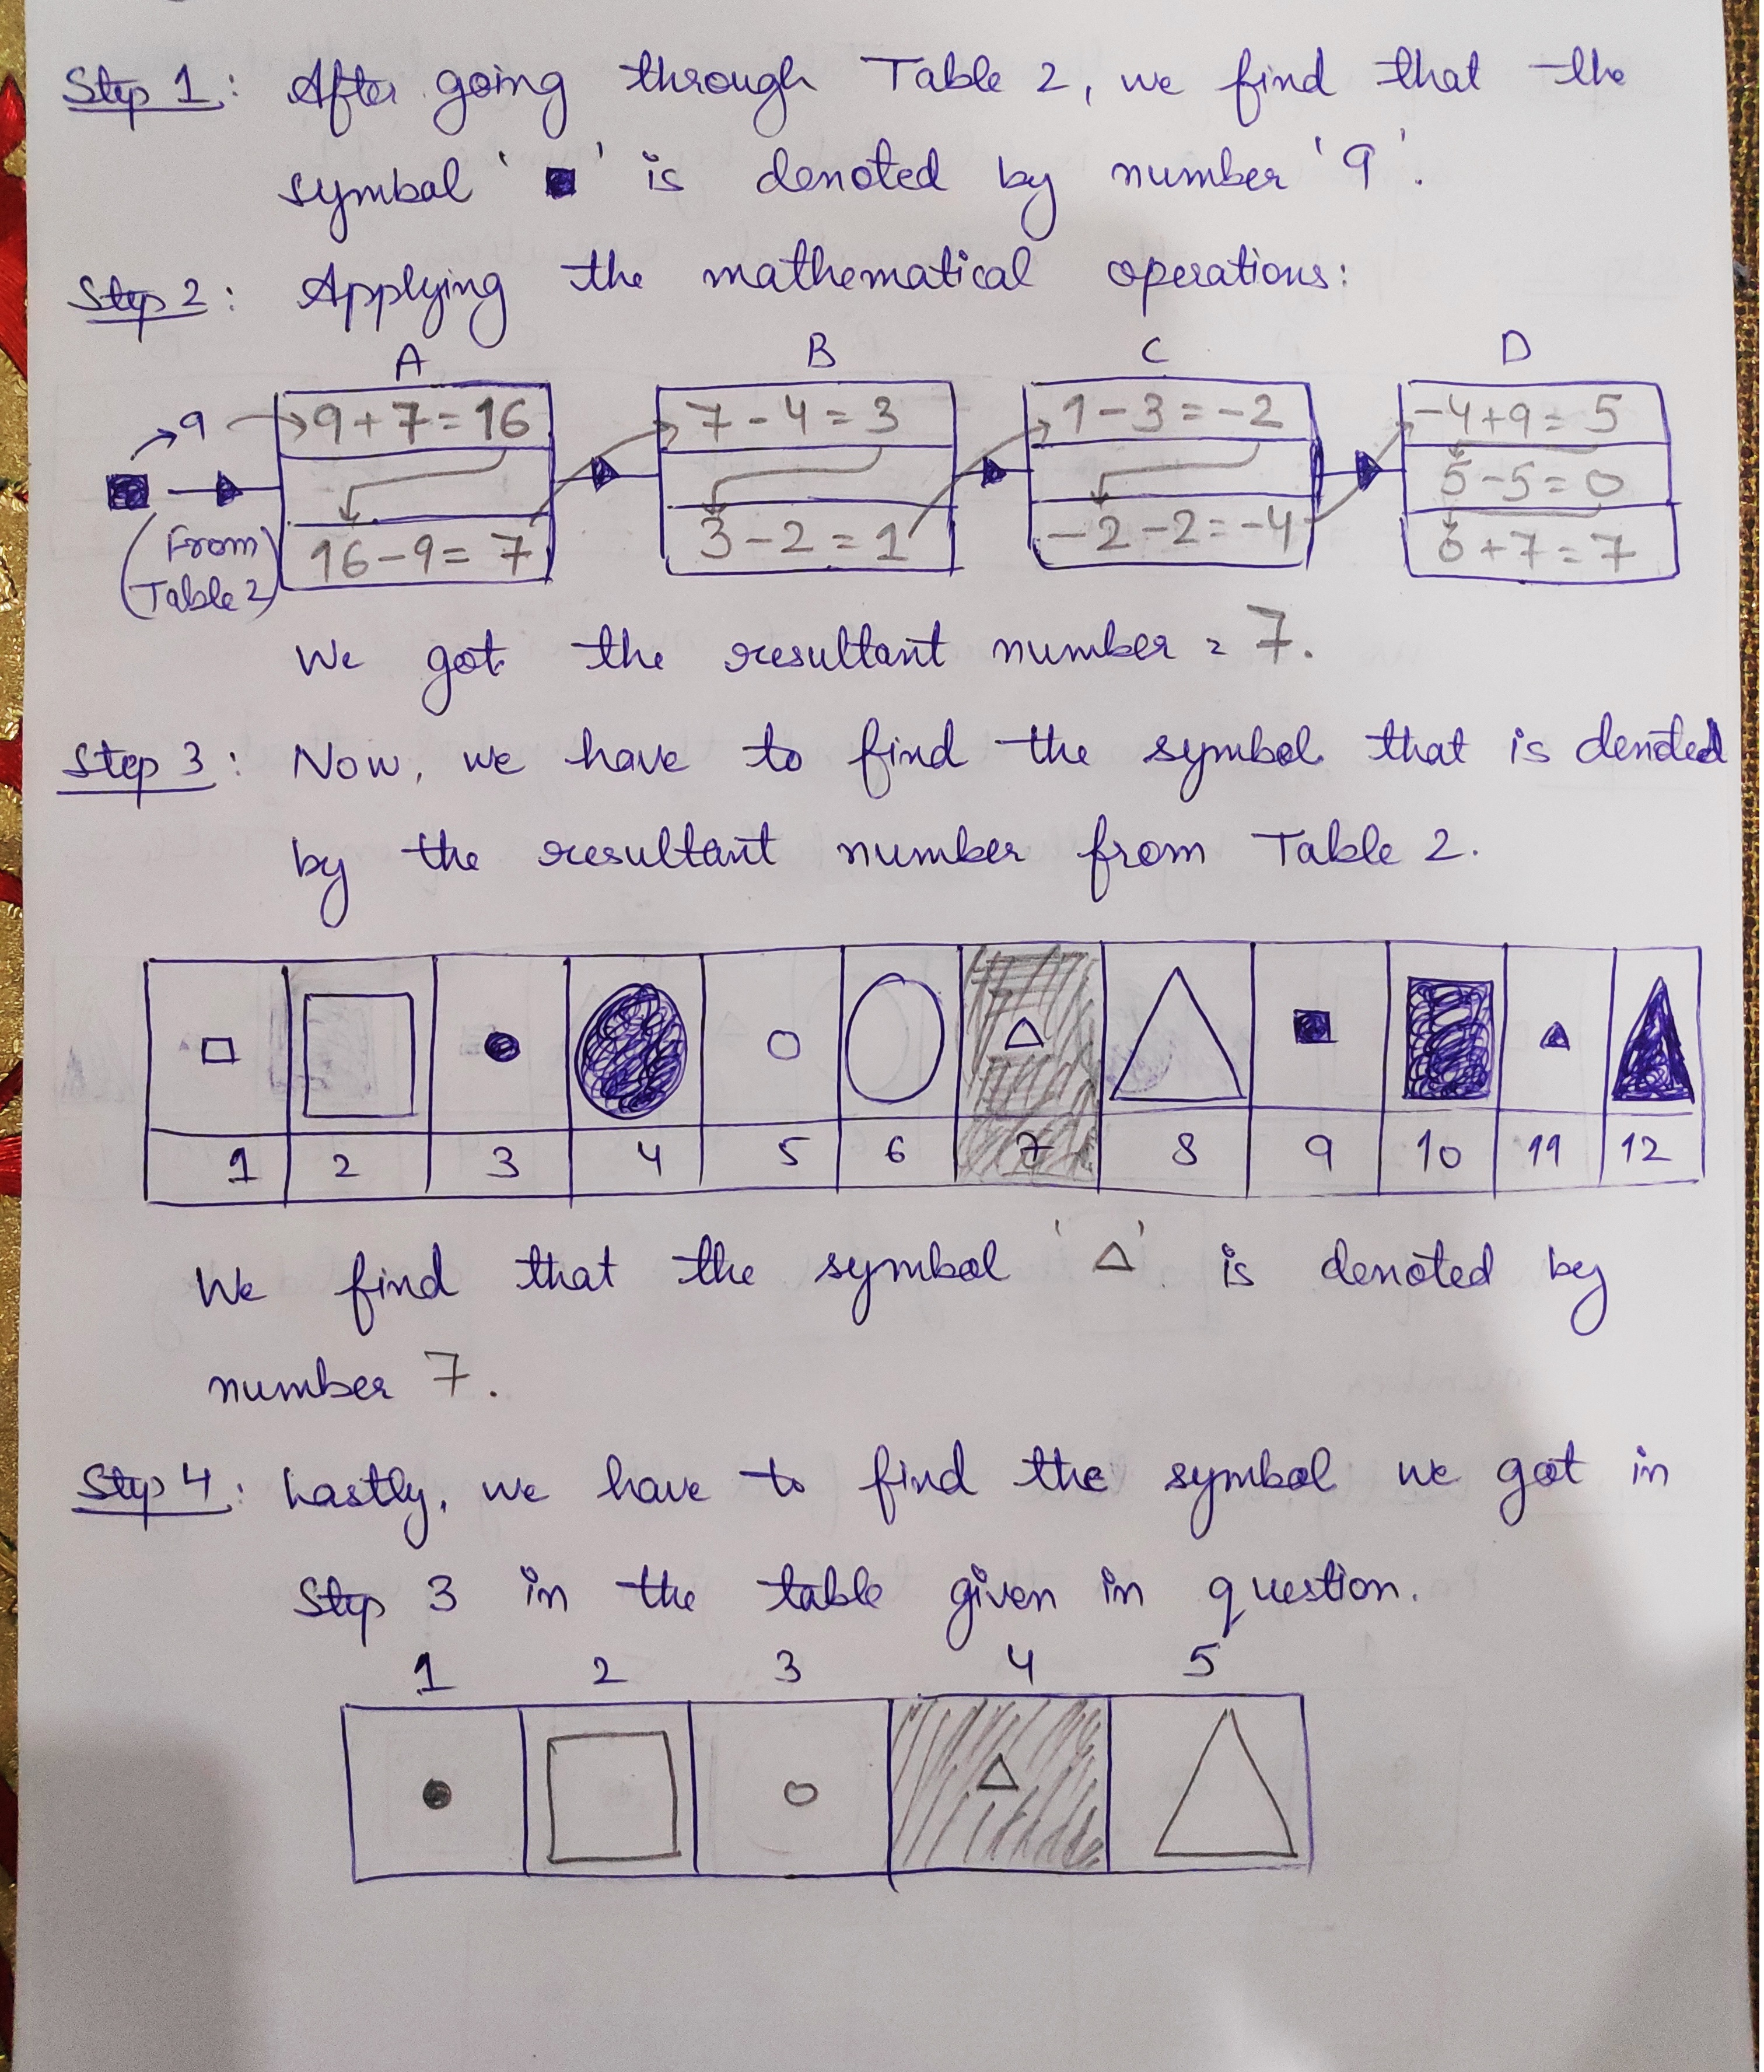 Step 1: After going through Table 2, we find that the
symbol '■' is denoted by number '9'.
Step 2: Applying the mathematical operations:
A B C D
9 9+7=16 7-4=3 1-3=-2 -4+9=5
5-5=0
(From Table 2) 16-9=7 3-2=1 -2-2=-4 0+7=7
We got the resultant number = 7.
Step 3: Now, we have to find the symbol that is denoted
by the resultant number from Table 2.
1 2 3 4 5 6 7 8 9 10 11 12
We find that the symbol '△' is denoted by
number 7.
Step 4: Lastly, we have to find the symbol we got in
Step 3 in the table given in question.
1 2 3 4 5